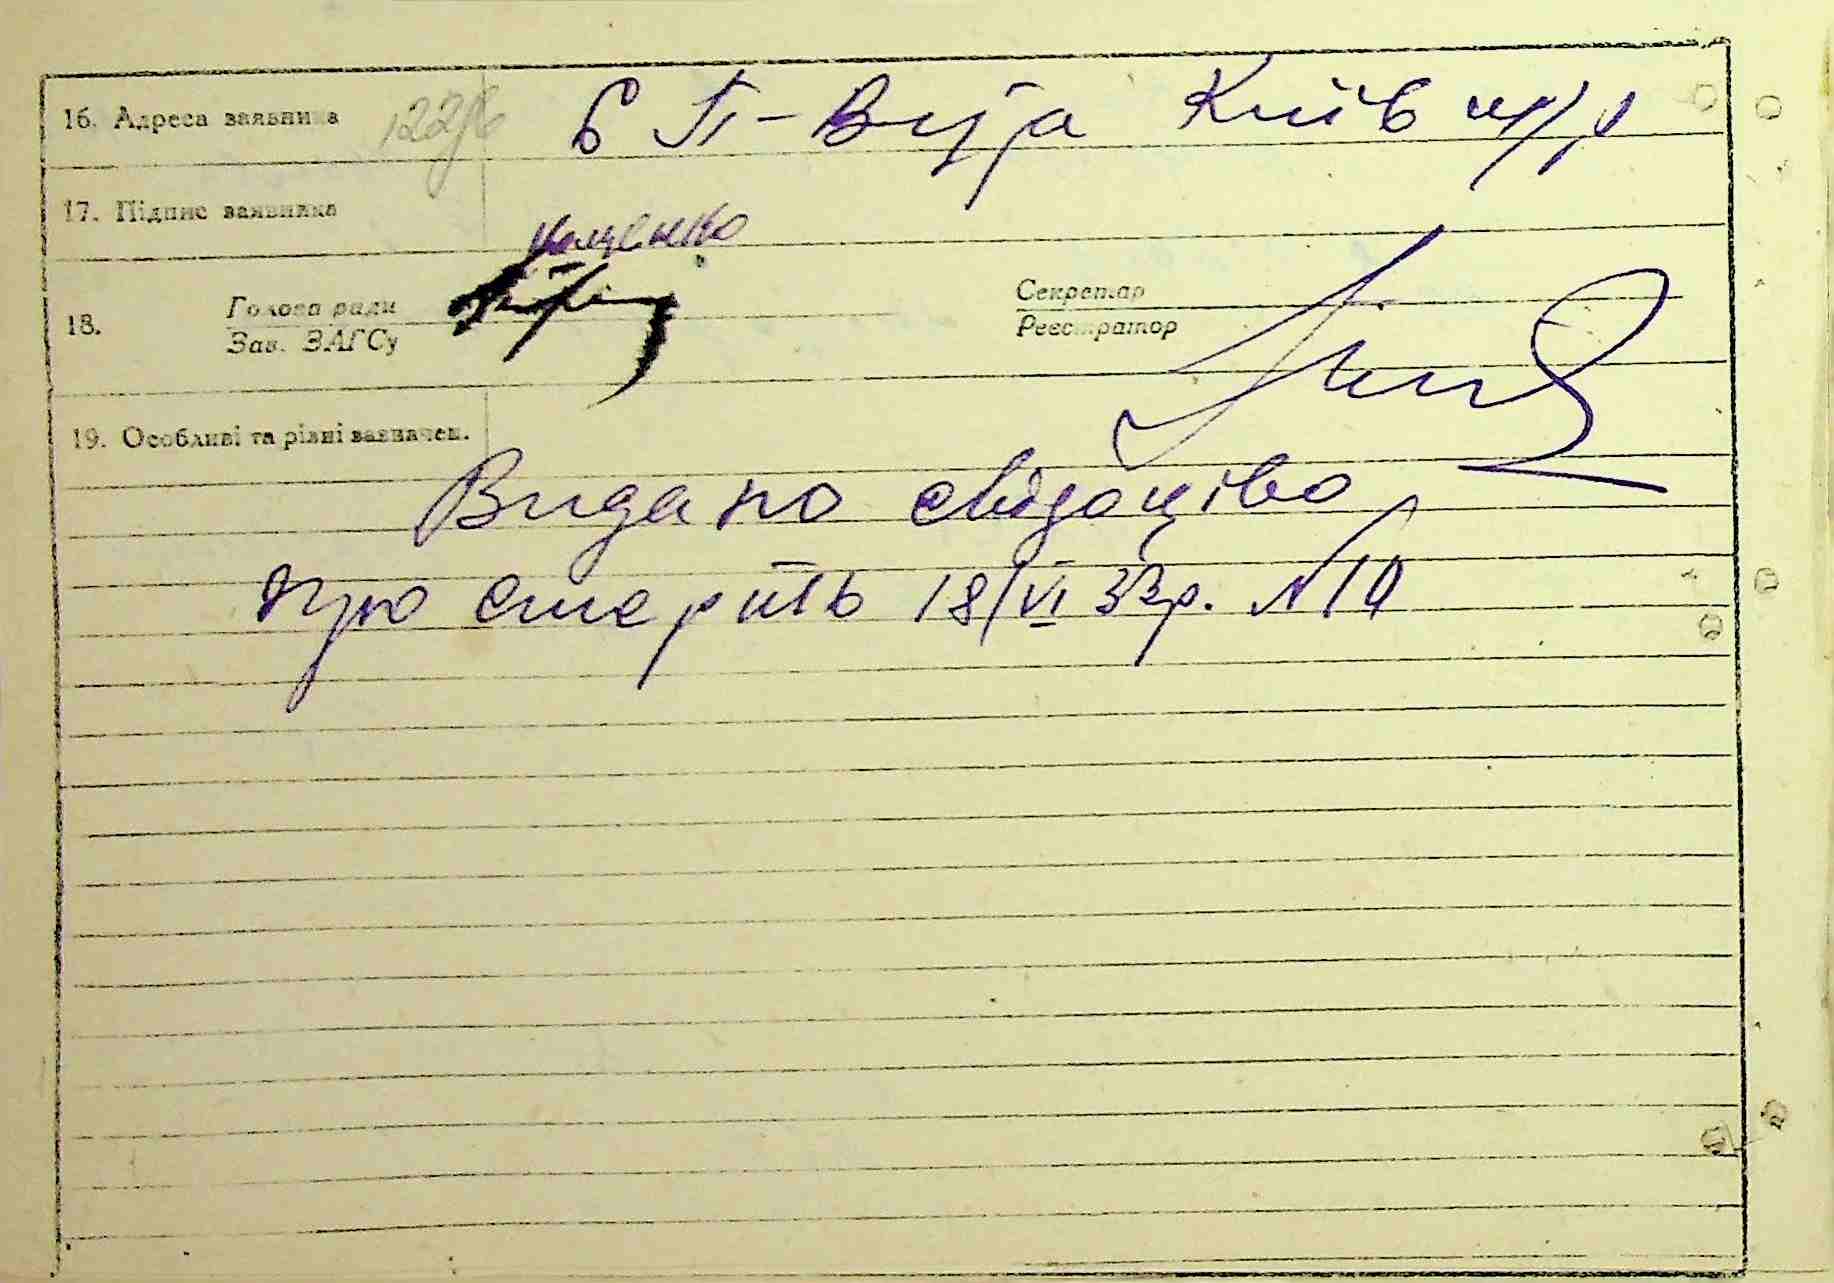 16. Адреса заявника 122 б П-Вита Київ м/р
17. Підпис заявника
18. Голова ради
Зав. ЗАГСу
Секретар
Реєстратор
19. Особливі та різні зазначен.
Видано свідоцтво
про смерть 18/VI 33р. N 10